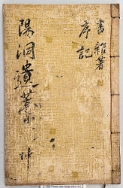 書 雜著
序 記
陽洞遺藁